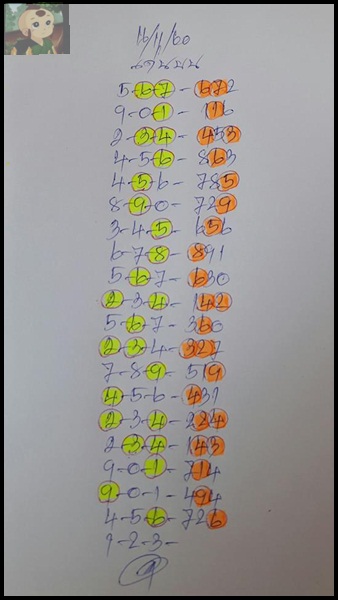 16/11/60
5-6-7 - 672
9-0-1 - 116
2-3-4 - 453
4-5-6 - 863
4-5-6 - 785
8-9-0 - 729
3-4-5 - 656
6-7-8 - 891
5-6-7 - 630
2-3-4 - 142
5-6-7 - 360
2-3-4 - 327
7-8-9 - 519
4-5-6 - 431
2-3-4 - 224
2-3-4 - 143
9-0-1 - 714
9-0-1 - 494
4-5-6 - 726
1-2-3 -